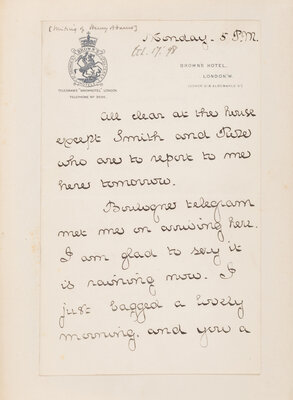 [Writing of Henry Adams]
Monday. 5 P.M.
Oct. 17. 98
BROWN'S HOTEL,
LONDON. W.
DOVER ST & ALBEMARLE ST.
TELEGRAMS "BROWNOTEL" LONDON.
TELEPHONE
All clear at the house
except Smith and
who are to report to me
here tomorrow.
Boulogne telegram
met me on arriving here.
I am glad to say it
is raining now. I
just bagged a lovely
morning, and you a